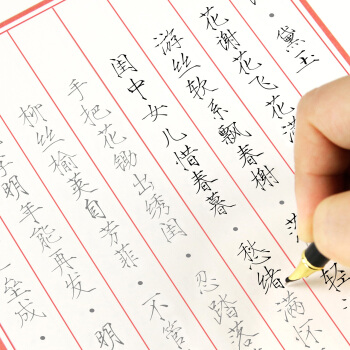 黛玉
花谢花飞花满
游丝软系飘春榭·
闺中女儿惜春暮·愁绪满怀
手把花锄出绣闺·忍踏落
柳丝榆荚自芳菲·不管
李明年能再发·明
垒成